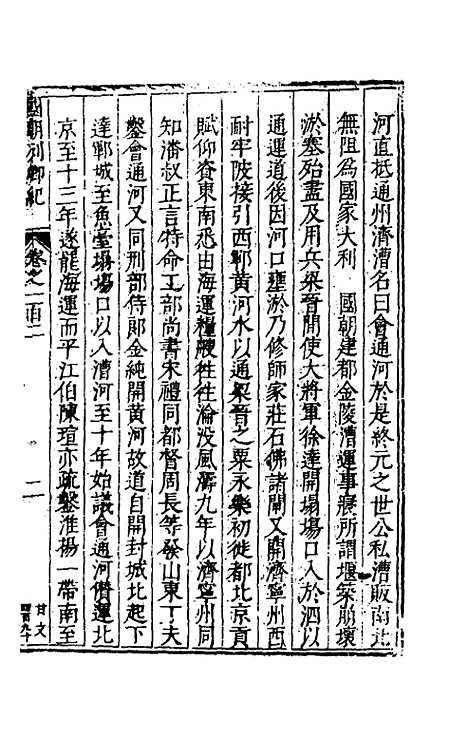 河直抵通州濟漕名曰會通河於是終元之世公私漕販南北
無阻為國家大利　國朝建都金陵漕運事寢所謂堰築崩壞
淤塞殆盡及用兵梁晉間使大將軍徐達開塌塲口入於泗以
通運道後因河口壅淤乃修師家莊石佛諸閘又開濟寧州西
耐牢陂接引西鄆黃河水以通梁晉之粟永樂初徙都北京貢
賦仰資東南悉由海運糧艘徃徃淪没風濤九年以濟寧州同
知潘叔正言特命工部尚書宋禮同都督周長等發山東丁夫
鑿會通河又同刑部侍郎金純開黃河故道自開封城北起下
達鄆城至魚臺塌塲口以入漕河至十年始議會通河儹運北
京至十三年遂罷海運而平江伯陳瑄亦疏鑿淮楊一帶南至
國朝列卿紀
卷之一百二
二
甘文
四百九十